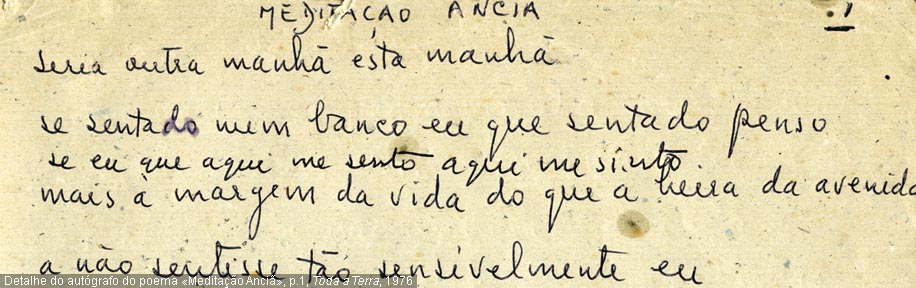 MEDITAÇÃO ANCIÃ
.1
seria outra manhã esta manhã
se sentado num banco eu que sentado penso
se eu que aqui me sento aqui me sinto
mais à margem da vida do que à beira da avenida
a não sentisse tão sensivelmente eu
Detalhe do autógrafo do poema «Meditação Anciã», p.1, Toda a Terra, 1976